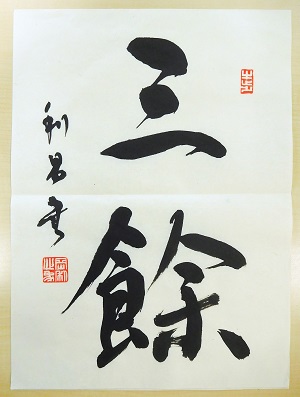 三餘
利昌書